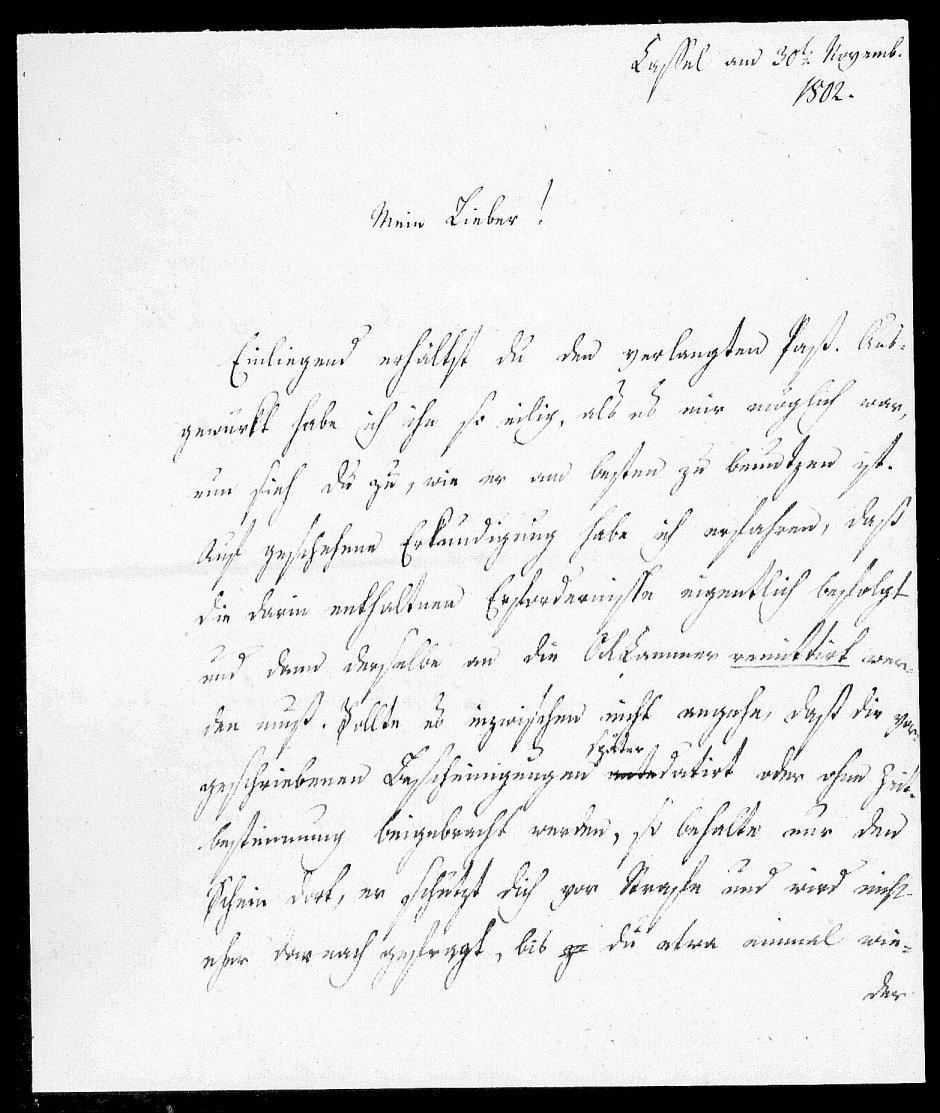 Cassel am 30t. Novemb.
1802.
Mein Lieber!
Einliegend erhältst du den verlangten Paß. Aus-
gewürkt habe ich ihn so eilig, als es mir möglich war,
nun sieh du zu, wie er am besten zu benutzen ist.
Auf geschehene Erkundigung habe ich erfahren, daß
die darin enthaltnen Erfordernisse eigentlich befolgt
und dann derselbe an die remittirt wer-
den muß. Sollte es inzwischen nicht angehn, daß die vor-
geschriebenen Bescheinigungen später
datirt oder ohne Zeit-
bestimmung beigebracht werden, so behalte nur den
Schein dort, er schützt dich vor Strafe und wird nicht
eher darnach gefragt, bis du etwa einmal wie-
der